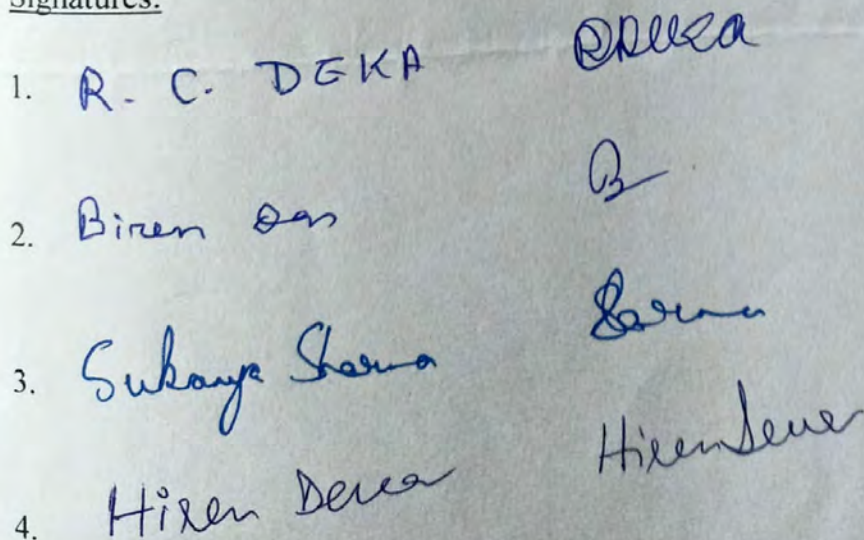 Signatures:
1. R. C. DEKA RDeka
2. Biren Das B
3. Sukanya Sharma Sarma
4. Hiren Deka Hiren Deka